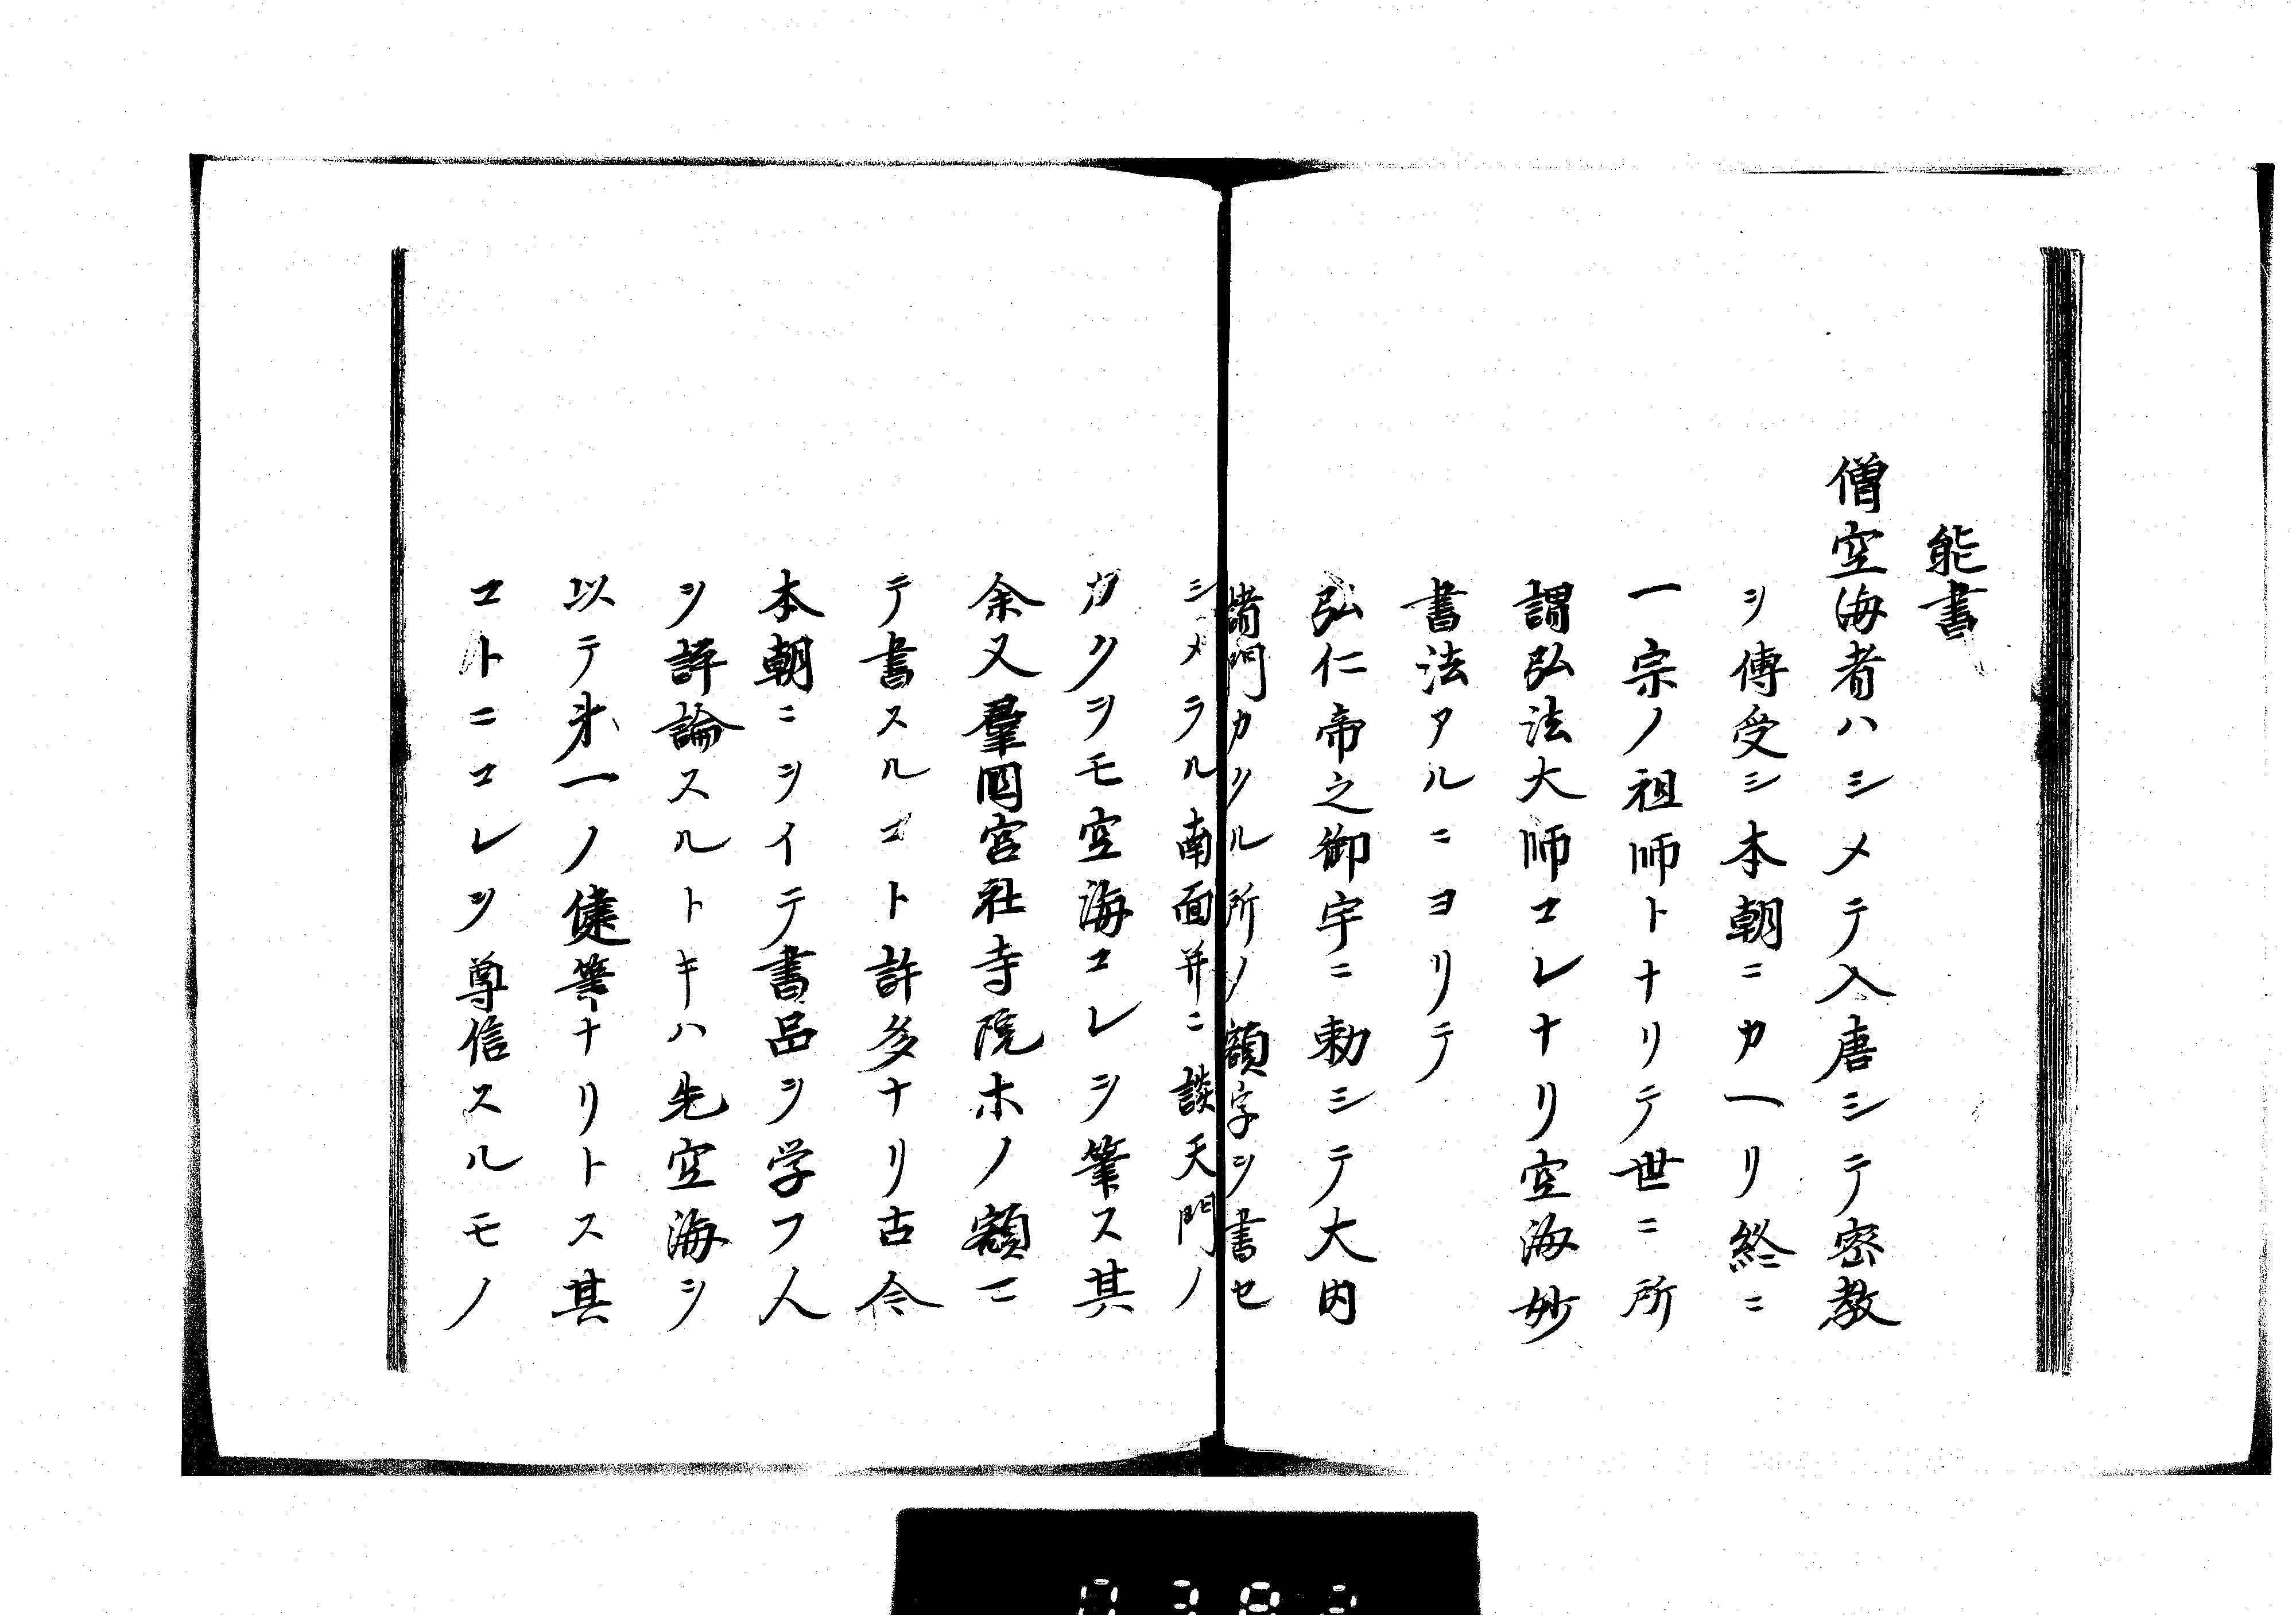 能書
僧空海者ハシメテ入唐シテ密教
ヲ傳受シ本朝ニカヘリ終ニ
一宗ノ祖師トナリテ世ニ所
謂弘法大師コレナリ空海妙
書法アルニヨリテ
弘仁帝之御宇ニ勅シテ大内
諸門カクル所ノ額字ヲ書セ
シメラル南面并ニ談天門ノ
カクヲモ空海コレヲ筆ス其
余又羣国宮社寺院ホノ額ニ
テ書スルコト許多ナリ古今
本朝ニヲイテ書品ヲ学フ人
ヲ評論スルトキハ先空海ヲ
以テ㐧一ノ健筆ナリトス其
コトニコレヲ尊信スルモノ